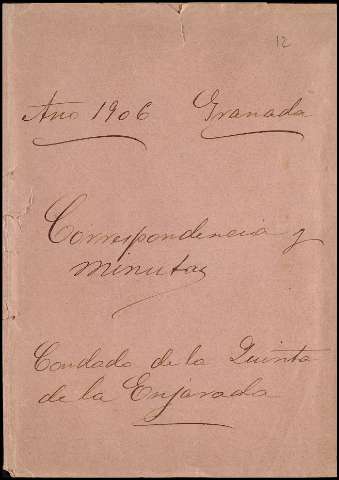 12
Año 1906 Granada
Correspondencia y
minutas
Condado de la Quinta
de la Enjarada